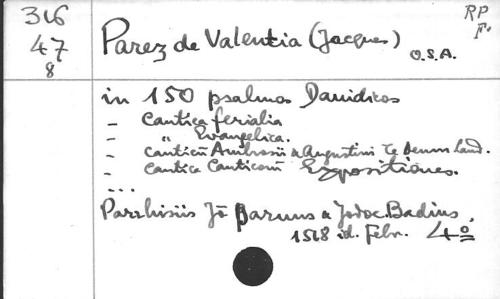 316
47
8
Parez de Valentia (Jacques)
O.S.A.
RP
F.
in 150 psalmos Dauidicos
- Cantica ferialia
- " Evangelica.
- canticū Ambrosii & Augustini Te Deum laud.
- Cantica Canticorū Expositiones.
...
Parrhisiis Jō Paruus & Jodoc. Badius,
1518 id. Febr. 4º